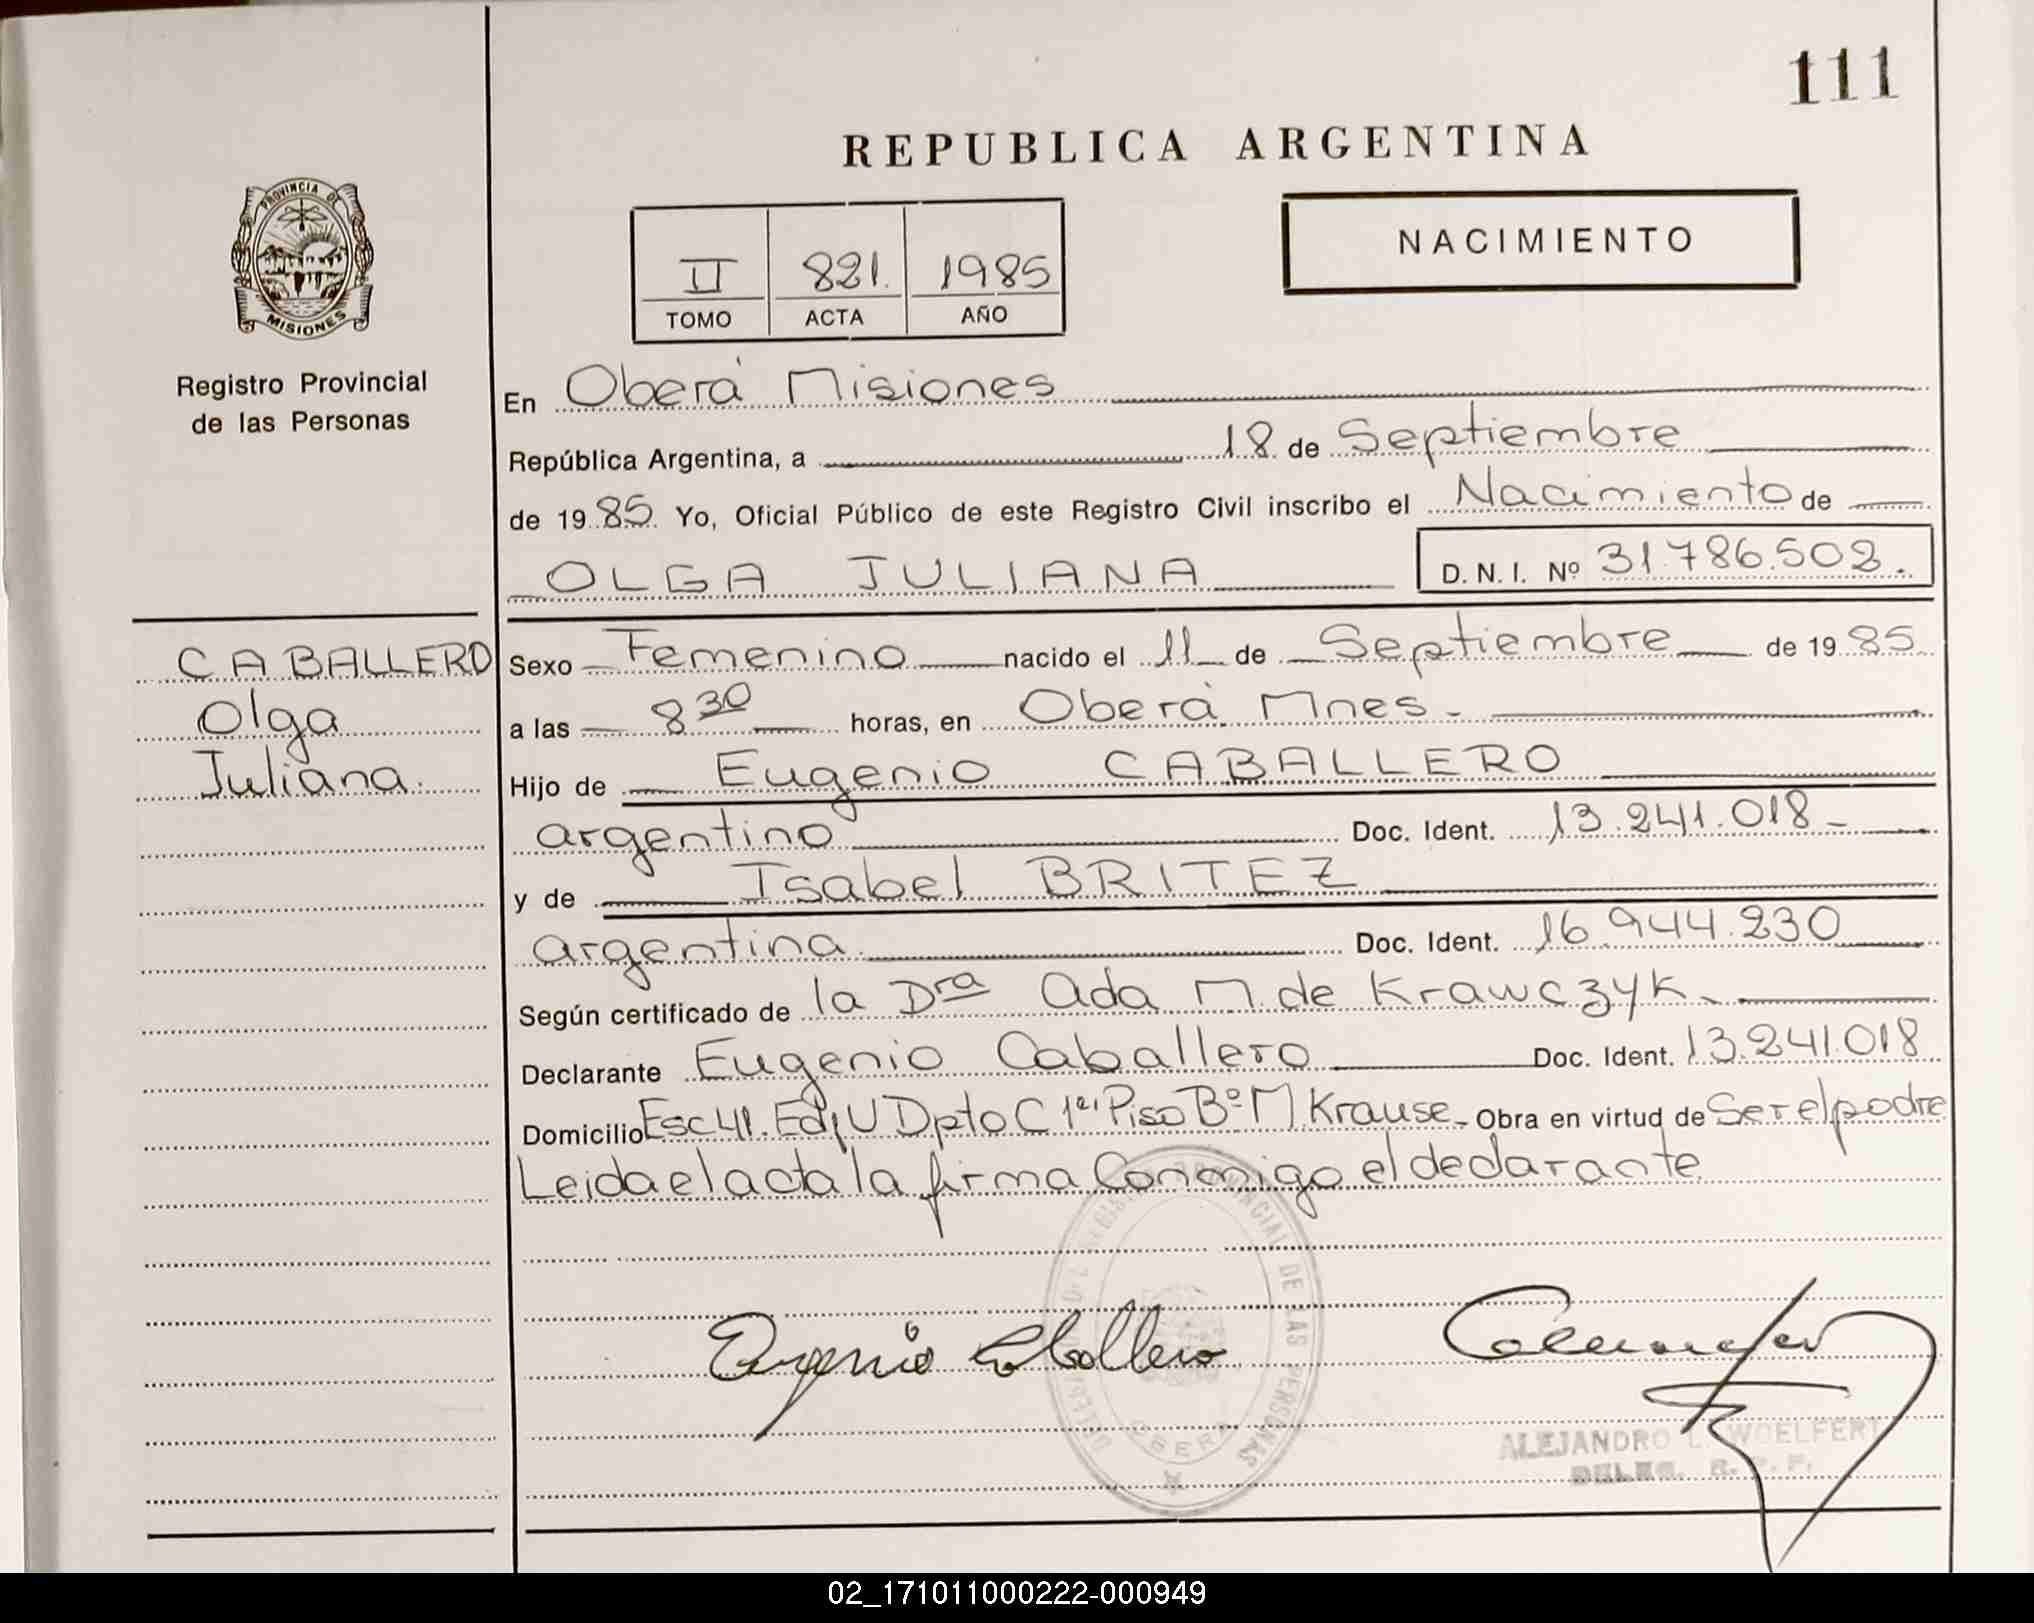 111
REPUBLICA ARGENTINA
PROVINCIA DE
MISIONES
Registro Provincial
de las Personas
II 821. 1985
TOMO ACTA AÑO
NACIMIENTO
En Oberá Misiones
República Argentina, a 18 de Septiembre
de 1985. Yo, Oficial Público de este Registro Civil inscribo el Nacimiento de
OLGA JULIANA D. N. I. Nº 31.786.502.
CABALLERO
Olga
Juliana.
Sexo Femenino nacido el 11 de Septiembre de 1985
a las 8 30 horas, en Oberá Mnes.
Hijo de Eugenio CABALLERO
argentino Doc. Ident. 13.241.018
y de Isabel BRITEZ
argentina Doc. Ident. 16.944.230
Según certificado de la Dra Ada M. de Krawczyk
Declarante Eugenio Caballero Doc. Ident. 13.241.018
Domicilio Esc 41. Edi U Dpto C 1er Piso Bº M Krause Obra en virtud de Ser el podre
Leida el acta la firma Conmigo el declarante
Eugenio Caballero
DE LAS PERSONAS
OBERA
ALEJANDRO L. WOELFERT
DELEG. R. P. P.
02_171011000222-000949